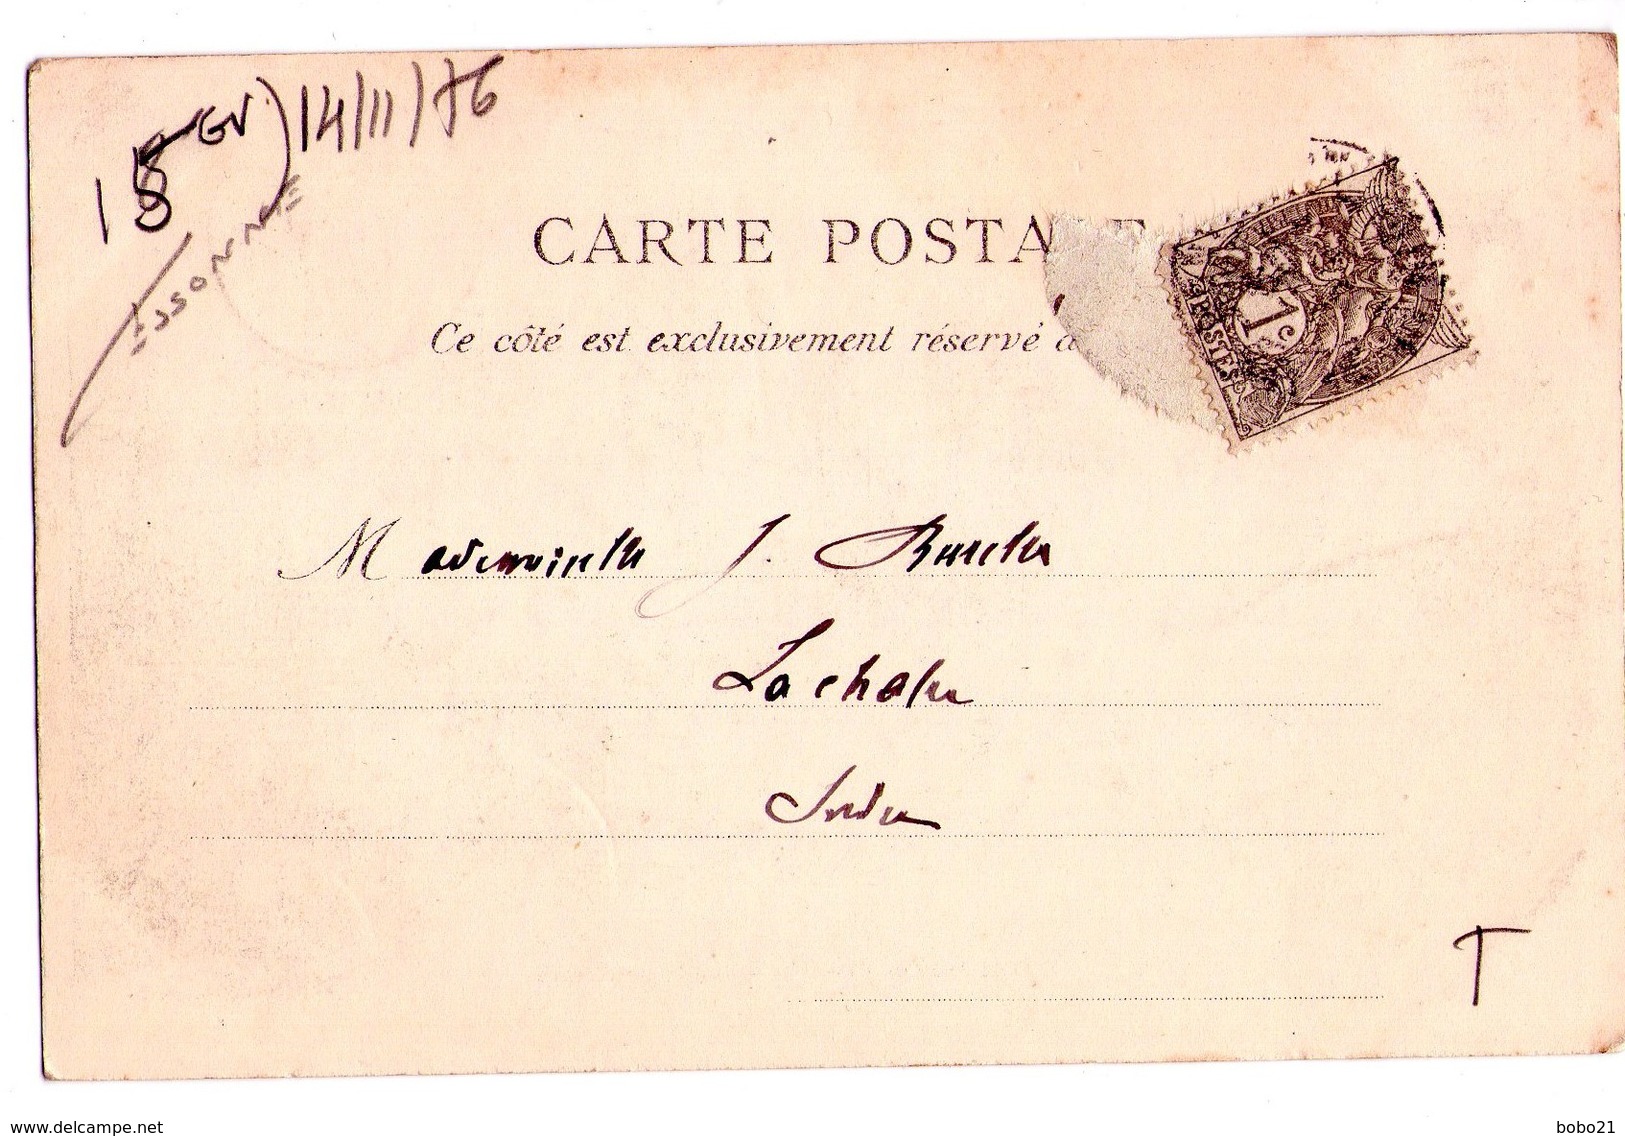 GV) 14/11/76
ESSONNE
CARTE POSTA
Ce côté est exclusivement réservé à
1c
POSTES
Mademoiselle J.
Lachatre
Indre
T
www.delcampe.net
bobo21